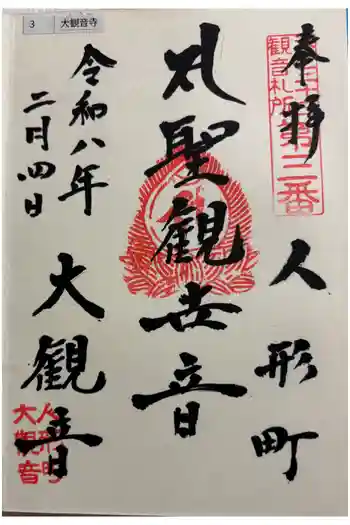 3 大観音寺
奉拝
観音札所第三番
人形町
聖観世音
令和八年
二月四日
大観音
人形町
大観音